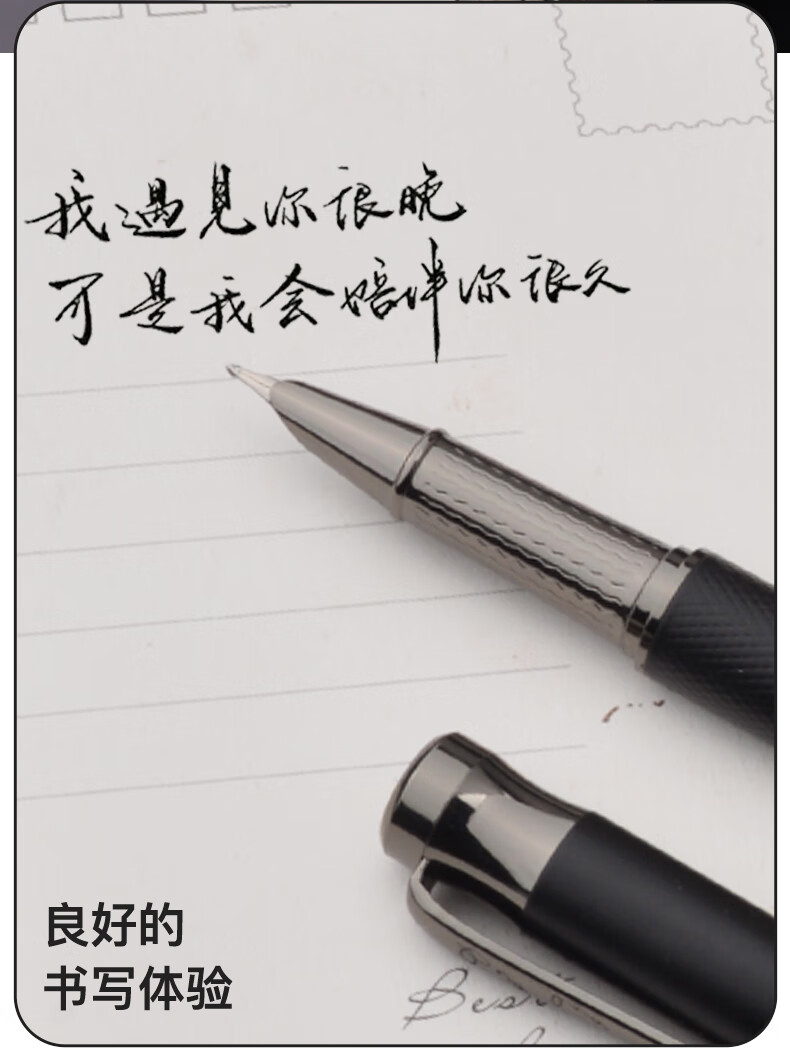 我遇見你很晚
可是我会陪伴你很久
良好的
书写体验